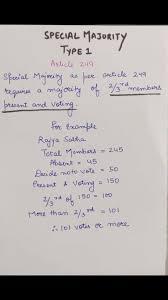 SPECIAL MAJORITY
TYPE 1
Article 249
Special Majority as per article 249
requires a majority of 2/3rd members
present and voting.
For Example
Rajya Sabha
Total Members = 245
Absent = 45
Decide not to vote = 50
Present & Voting = 150
2/3rd of 150 = 100
More than 2/3rd = 101
∴ 101 votes or more